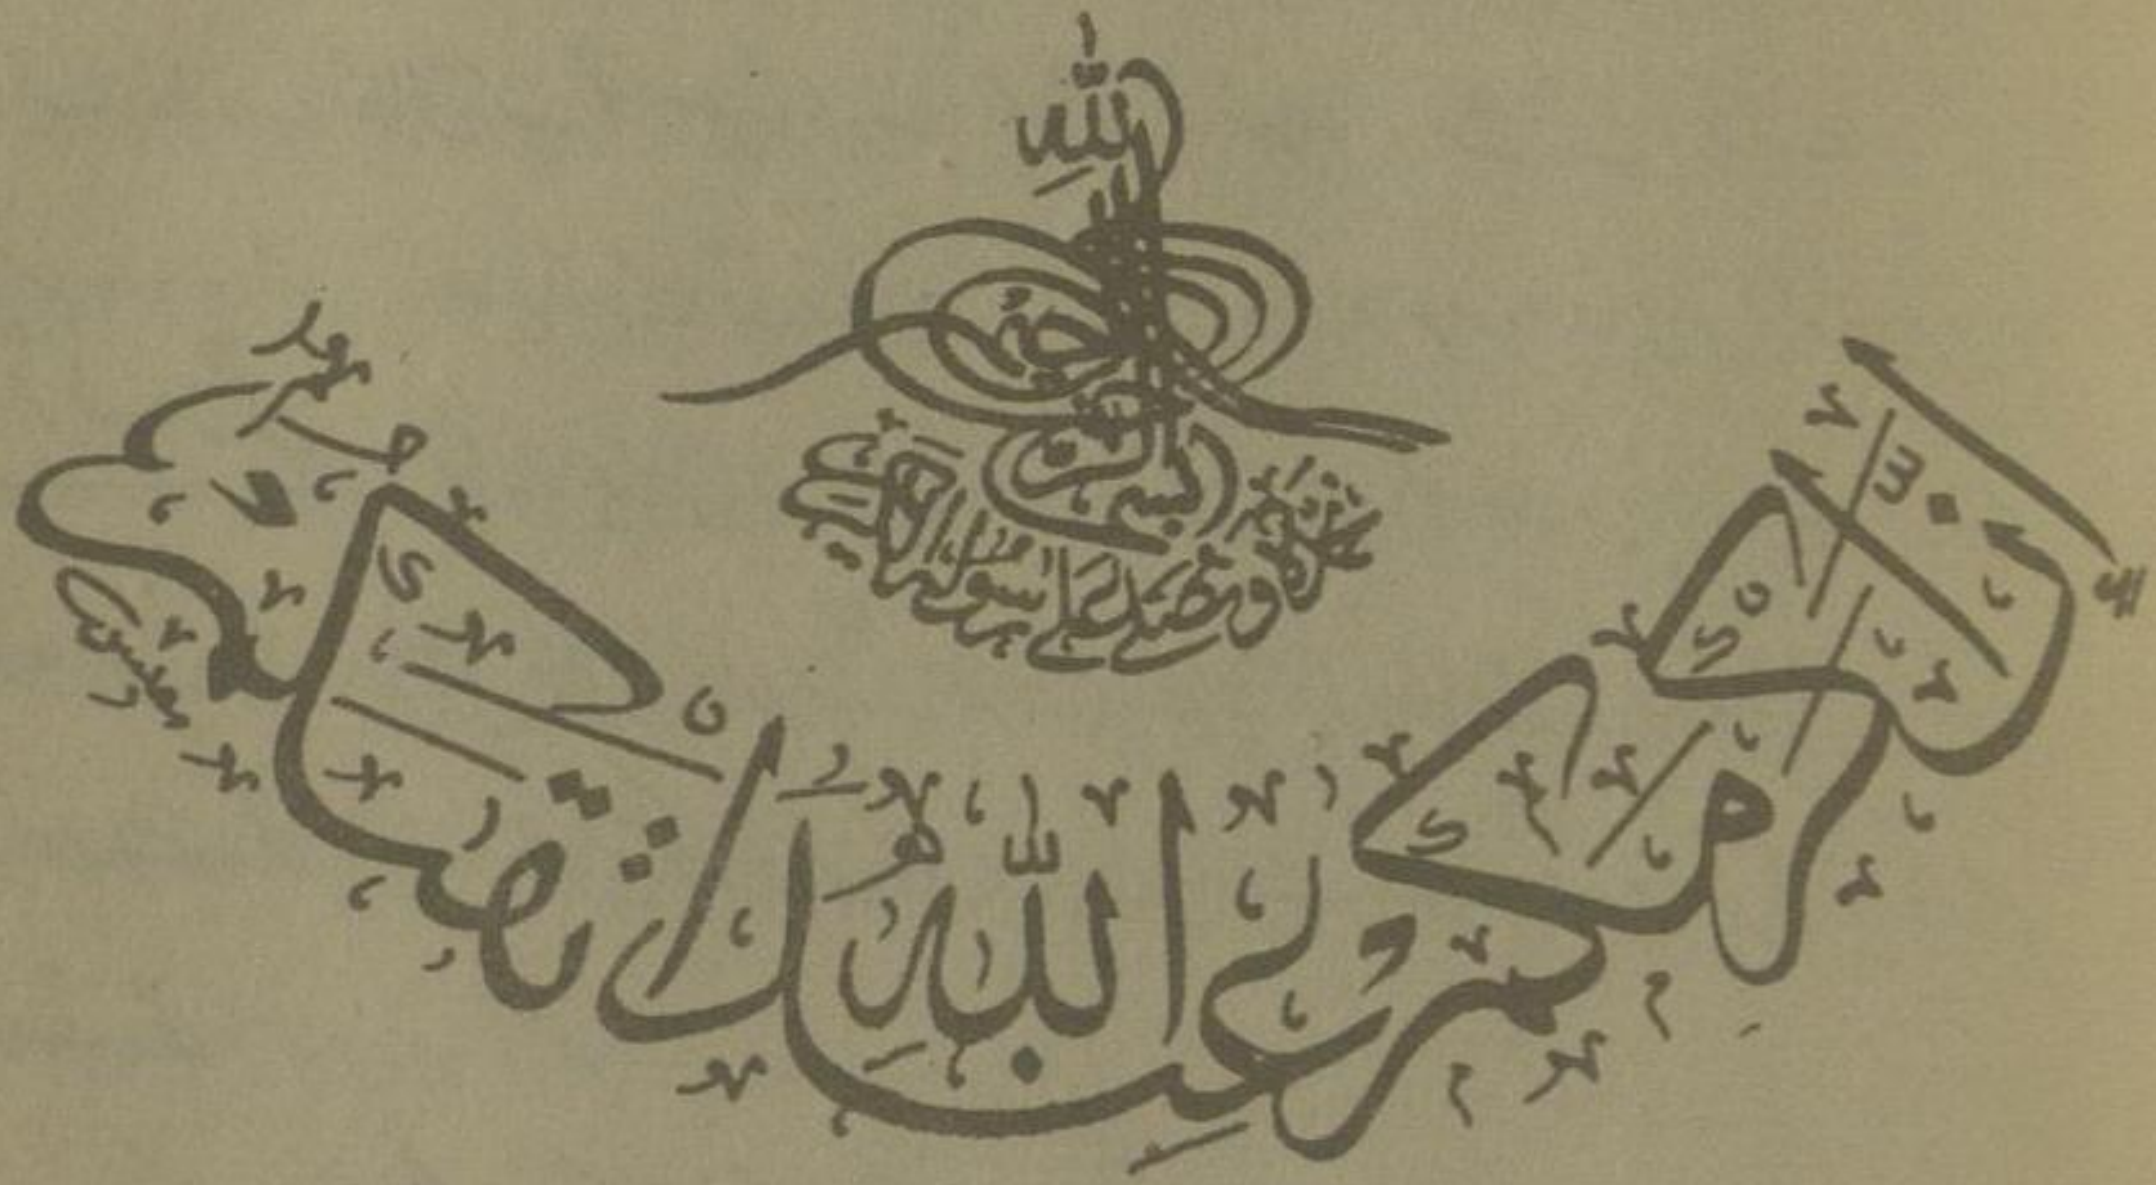 بسم الله الرحمن الرحيم
نحمده ونصلي على رسوله الكريم
إن أكرمكم عند الله أتقىكم